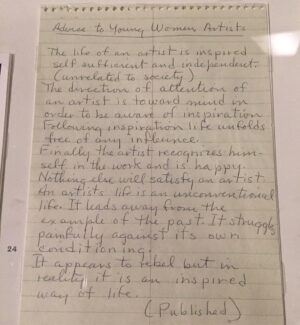 Advice to Young Women Artists
The life of an artist is inspired
self sufficient and independent.
(unrelated to society)
The direction of attention of
an artist is toward mind in
order to be aware of inspiration
Following inspiration life unfolds
free of any influence.
Finally the artist recognizes him-
self in the work and is happy.
Nothing else will satisfy an artist.
An artists life is an unconventional
life. It leads away from the
example of the past. It struggles
painfully against its own
conditioning.
It appears to rebel but in
reality it is an inspired
way of life.
(Published)
24